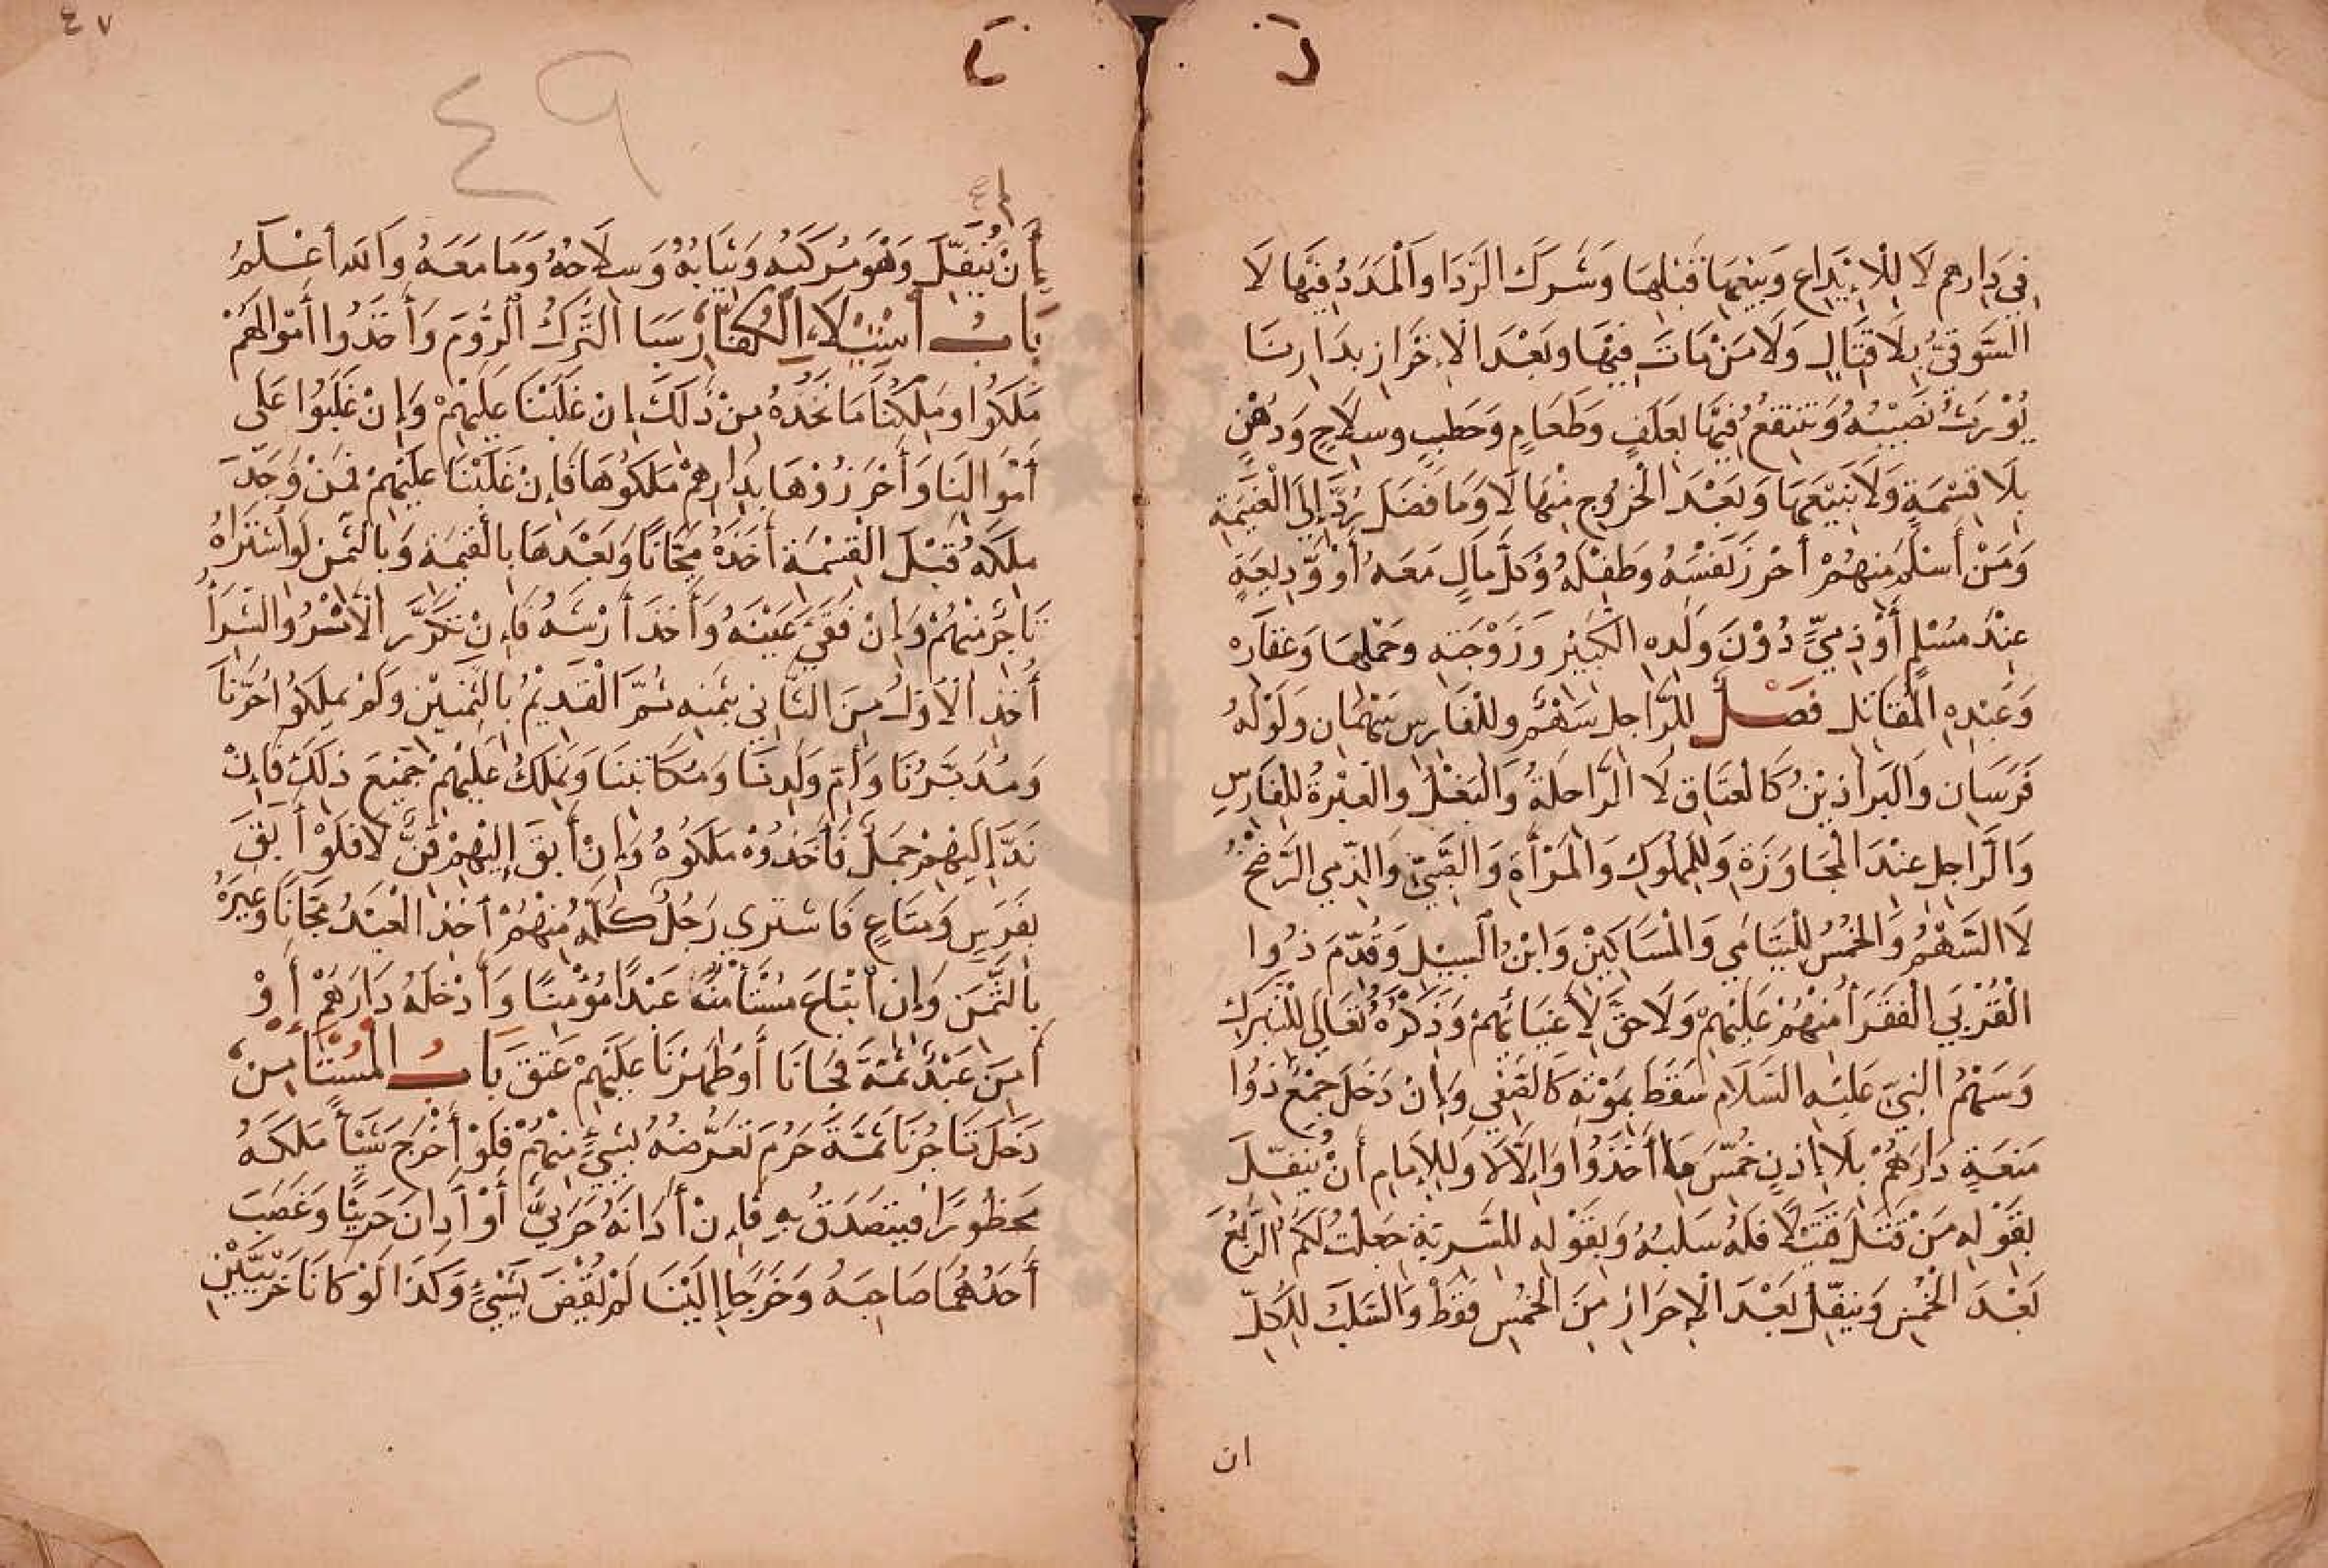 في دارهم لا للإيداع وبيعها قبلها وشرك الردا والمدد فيها لا
السوقي بلا قتال ولا من مات فيها وبعد الإخراز بدارنا
يورث نصيبه وينتفع فيها بعلف وطعام وحطب وسلاح ودهن
بلا قسمة ولا نبيعها وبعد الخروج منها لا وما فضل رد إلى الغنيمة
ومن أسلم منهم أحرز نفسه وطفله وكل مال معه أو وديعة
عند مسلم أو ذمي دون ولده الكبير وزوجته وحملها وعقاره
وعبده المقاتل فصل للراجل سهم وللفارس سهمان ولو له
فرسان والبراذين كالعتاق لا الراحلة والبغل والعبرة للفارس
والراجل عند المجاوزة وللمملوك والمرأة والصبي والذمي الرضخ
لا السهم والخمس لليتامي والمساكين وابن السبيل وقدم ذووا
القربي الفقرأ منهم عليهم ولا حق لأغنيائهم وذكره تعالى للتبرك
وسهم النبي عليه السلام سقط بموته كالصفي وإن دخل جمع ذوا
منعة دارهم بلا إذن خمس ما أخذوا وإلا لا وللإمام أن ينفل
بقوله من قتل قتيلا فله سلبه وبقوله للسرية جعلت لكم الربع
بعد الخمس وينفل بعد الإحراز من الخمس فقط والسلب للكل
ان
٤٧
٤٩
أن ينفل وهو مركبه وثيابه وسلاحه وما معه والله أعلم
باب استيلاء الكفار سبا الترك الروم وأخذوا أموالهم
ملكوا وملكنا ما نجده من ذلك إن غلبنا عليهم وإن غلبوا على
أموالنا وأحرزوها بدارهم ملكوها فإن غلبنا عليهم فمن وجد
ملكه قبل القسمة أخذه مجانا وبعدها بالقيمة وبالثمن لو اشتراه
تاجر منهم وإن فقئ عينه وأخذ أرشه فإن تكرر الأسر والشرأ
أخذ الأول من الثاني بثمنه ثم القديم بالثمنين ولم يملكوا حرنا
ومدبرنا وأم ولدنا ومكاتبنا ونملك عليهم جميع ذلك فإن
ند إليهم جمل فأخذوه ملكوه وإن أبق إليهم قن لا فلو أبق
بفرس ومتاع فاشترى رجل كله منهم أخذ العبد مجانا وغيره
بالثمن وإن ابتاع مستأمن عبدا مؤمنا وأدخله دارهم أو
أمن عبد ثمة فجانا أو ظهرنا عليهم عتق باب المستأمن
دخل تاجرنا ثمة حرم تعرضه لشيء منهم فلو أخرج شيئا ملكه
محظورا فيتصدق به فإن أدانه حربي أو أدان حربيا وغصب
أحدهما صاحبه وخرجا إلينا لم نقض بشيء وكذا لو كانا حربيين